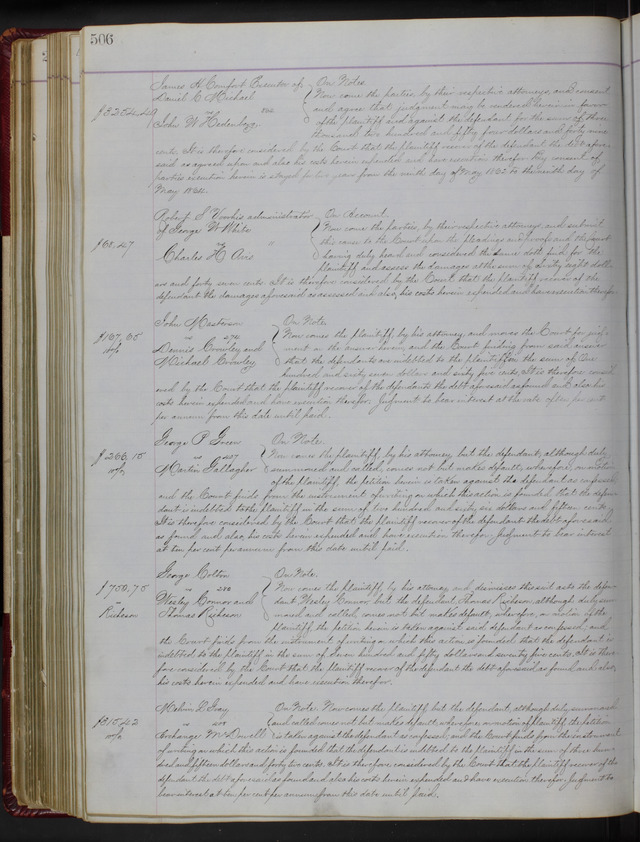 506
James H Comfort Executor of On Notes.
Daniel C. McShael Now come the parties, by their respective attorneys, and consent
$3254.49 vs and agree that judgment may be rendered herein in favor
John W. of the plaintiff and against the defendant for the sum of three
thousand two hundred and fifty four dollars and forty nine
cents. It is therefore considered by the Court that the plaintiff recover of the defendant the debt afore
said as agreed upon and also his costs herein expended and have execution therefor. By consent of
parties execution herein is stayed two years from the ninth day of May 1882 to the ninth day of
May 1884.
Robert S Voorhis administrator On Account.
of George W White Now come the parties, by their respective attorneys and submit
vs this cause to the Court upon the pleadings and proofs and the Court
$68.47 Charles H Avis having duly heard and considered the same doth find for the
plaintiff and assess the damages at the sum of sixty eight doll-
ars and forty seven cents. It is therefore considered by the Court that the plaintiff recover of the
defendant the damages aforesaid as assessed and also his costs herein expended and have execution therefor.
John Masterson On Note.
$167.65 vs Now comes the plaintiff, by his attorney, and moves the Court for judg-
Dennis Crowley and ment on the answer herein, and the Court finding from said answer
Michael Crowley that the defendants are indebted to the plaintiff in the sum of One
hundred and sixty seven dollars and sixty five cents. It is therefore consid-
ered by the Court that the plaintiff recover of the defendants the debt aforesaid as found and also his
costs herein expended and have execution therefor. Judgment to bear interest at the rate of ten per cent
per annum from this date until paid.
George P. Green On Note.
$266.15 vs Now comes the plaintiff, by his attorney, but the defendant, although duly
Martin Gallagher summoned and called, comes not but makes default, wherefore, on motion
of the plaintiff, the petition herein is taken against the defendant as confessed
and the Court finds from the instrument of writing on which this action is founded, that the defen-
dant is indebted to the plaintiff in the sum of two hundred and sixty six dollars and fifteen cents.
It is therefore considered by the Court that the plaintiff recover of the defendant the debt aforesaid
as found and also his costs herein expended and have execution therefor. Judgment to bear interest
at ten per cent per annum from this date until paid.
George Colton On Note.
$750.75 vs Now comes the plaintiff, by his attorney, and dismisses this suit as to the defen-
Wesley Connor and dant Wesley Connor, but the defendant, Thomas Richeson, although duly sum-
Richeson Thomas Richeson moned and called, comes not but makes default, wherefore, on motion of the
plaintiff, the petition herein is taken against said defendant as confessed, and
the Court finds from the instrument of writing on which this action is founded, that the defendant is
indebted to the plaintiff in the sum of seven hundred and fifty dollars and seventy five cents. It is there-
fore considered by the Court that the plaintiff recover of the defendant the debt aforesaid as found and also
his costs herein expended and have execution therefor.
Melvin L Gray On Note. Now comes the plaintiff but the defendant, although duly summoned
$315.42 vs and called comes not but makes default, wherefore, on motion of plaintiff, the petition
McDowell is taken against the defendant as confessed, and the Court finds from the instrument
of writing on which this action is founded that the defendant is indebted to the plaintiff in the sum of three hun-
dred and fifteen dollars and forty two cents. It is therefore considered by the Court that the plaintiff recover of the
defendant the debt aforesaid as found and also his costs herein expended and have execution therefor. Judgment to
bear interest at ten per cent per annum from this date until paid.